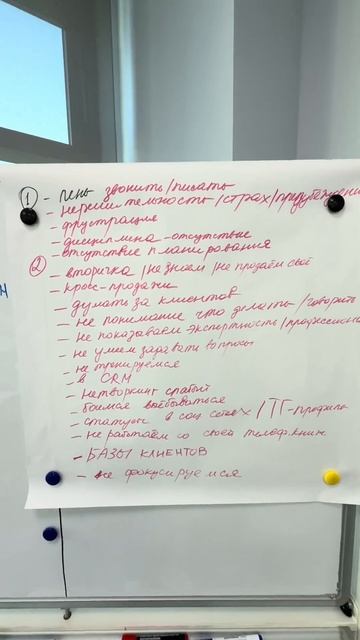 1 - лень звонить/писать
- нерешительность/страх/предубеждения
- фрустрация
- дисциплина - отсутствие
- отсутствие планирования
2 - вторичка /не знаем /не продаём своё
- кросс-продажи
- думать за клиентов
- не понимание что делать/говорить
- не показываем экспертность/профессионал
- не умеем задавать вопросы
- не тренируемся
- в CRM
- нетворкинг слабый
- боимся
- статусы в соц сетях/ТГ-профиль
- не работаем со своей телеф.книг
- БАЗЫ КЛИЕНТОВ
- не фокусируемся